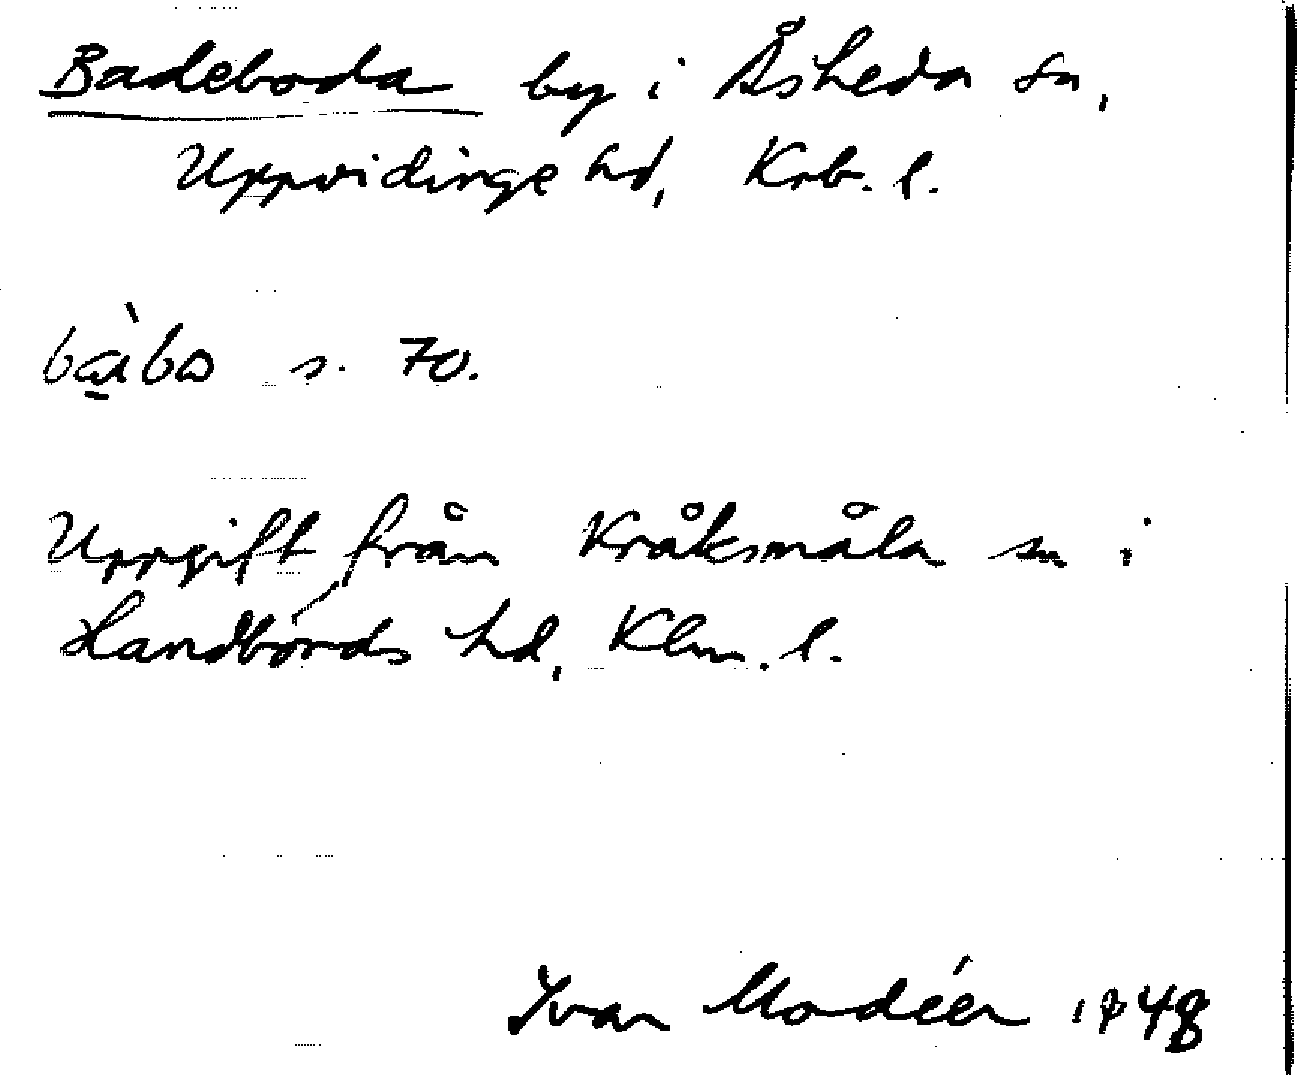 Badeboda by i Åsheda sn,
Uppvidinge hd, Krb. l.
s. 70.
Uppgift från Kråksmåla sn i
Handbörds hd, Klm. l.
Ivar Modéer 1948